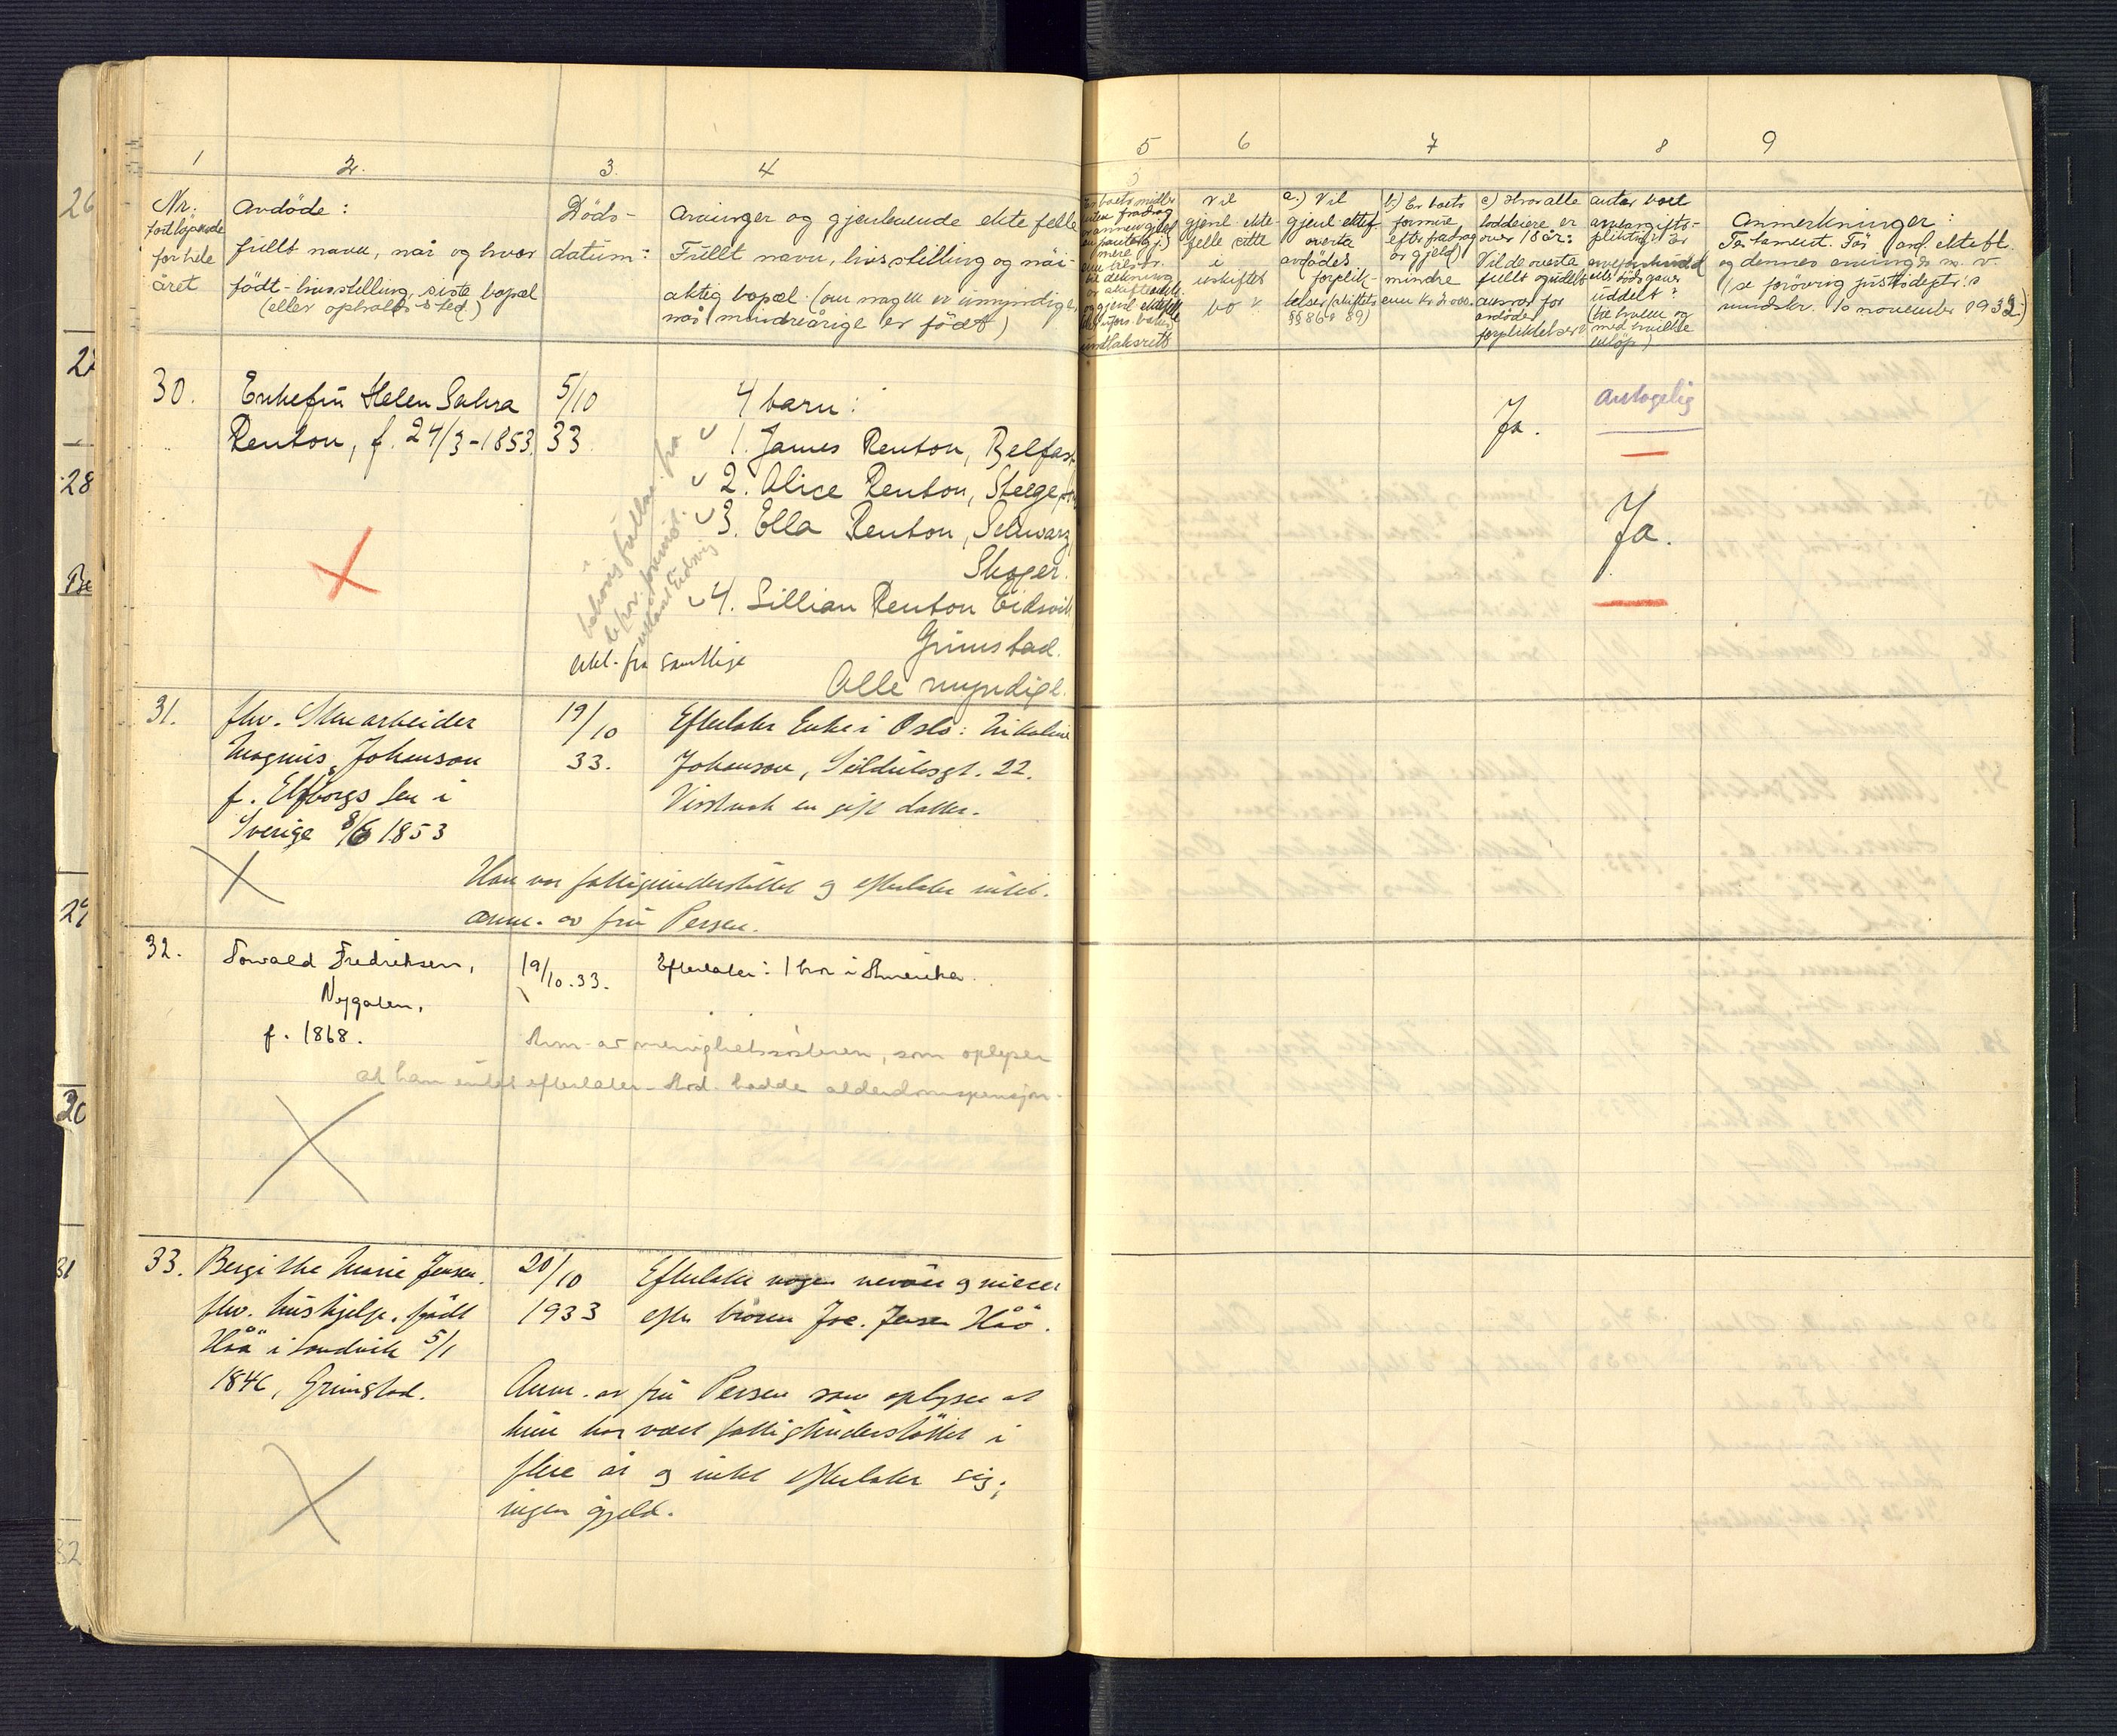 1 2. 3. 4 5 6 7 8 9
Nr.
fortløpende
for hele
året
Avdöde:
fullt navn, når og hvor
födt - livsstilling, siste bopæl
(eller opholdssted.)
Döds-
datum:
Arvinger og gjenlevende ektefelle
Fullt navn, livsstilling og nöi-
aktig bopæl. (om nogen er umyndige,
når mindreårige er födt)
Vil
gjenl. ekte-
felle sitte
i
uskiftet
bo?
a.) Vil
gjenl. ektef.
overta
avdödes
forplik-
telser (skiftels.
§§ 86 & 89)
b.) Er boets
formue
efter fradrag
av gjeld
mindre
enn kr.
c) Hvor alle
loddeiere er
over 18 år:
Vil de overta
fullt og udelt
ansvar for
avdödes
forpliktelser?
Antas boet
arveavgifts-
pliktig; er
arveforskudd
eller dödsgaver
uddelt?
(til hvem og
med hvilke
belöp)
Anmerkninger:
Testament. Før avd. ektef.
og dennes arvinger m. v.
(se forövrig justisdeptr.s
rundskr. 10 november 1932)
30.
Enkefru Helen Sahra
Renton, f. 24/3-1853.
5/10
33.
4 barn:
1. James Renton, Belfast
2. Alice Renton,
3. Ella Renton, Schwarz
Skoger.
4. Lillian Renton Eidsvik
Grimstad.
Alle myndige.
fra samtlige
Ja.
Antagelig
Ja.
31.
fhv. Stenarbeider
Magnus Johanson
f. Elfborgs len i
Sverige 8/6 1853
19/10
33.
Efterlater Enke i Oslo: Nikoline
Johanson, 22.
Visstnok en gift datter.
Han var fattigunderstöttet og efterlater intet.
Anm. av fru Persen.
32.
Torvald Fredriksen,
Nygaten,
f. 1868.
19/10.33.
Efterlater: 1 bror i Amerika.
Anm. av menighetssösteren, som oplyser
at han intet efterlater. Avd. hadde alderdomspensjon.
33.
Bergithe Marie Jensen.
fhv. hushjelp, född
Håö i Landvik 5/1
1846, Grimstad.
20/10
1933
Efterlater nogen nevöer og niecer
efter broren Joe. Jensen Håö.
Anm. av fru Persen som oplyser at
hun har vært fattigunderstöttet i
flere år og intet efterlater sig;
ingen gjeld.
28
31
32